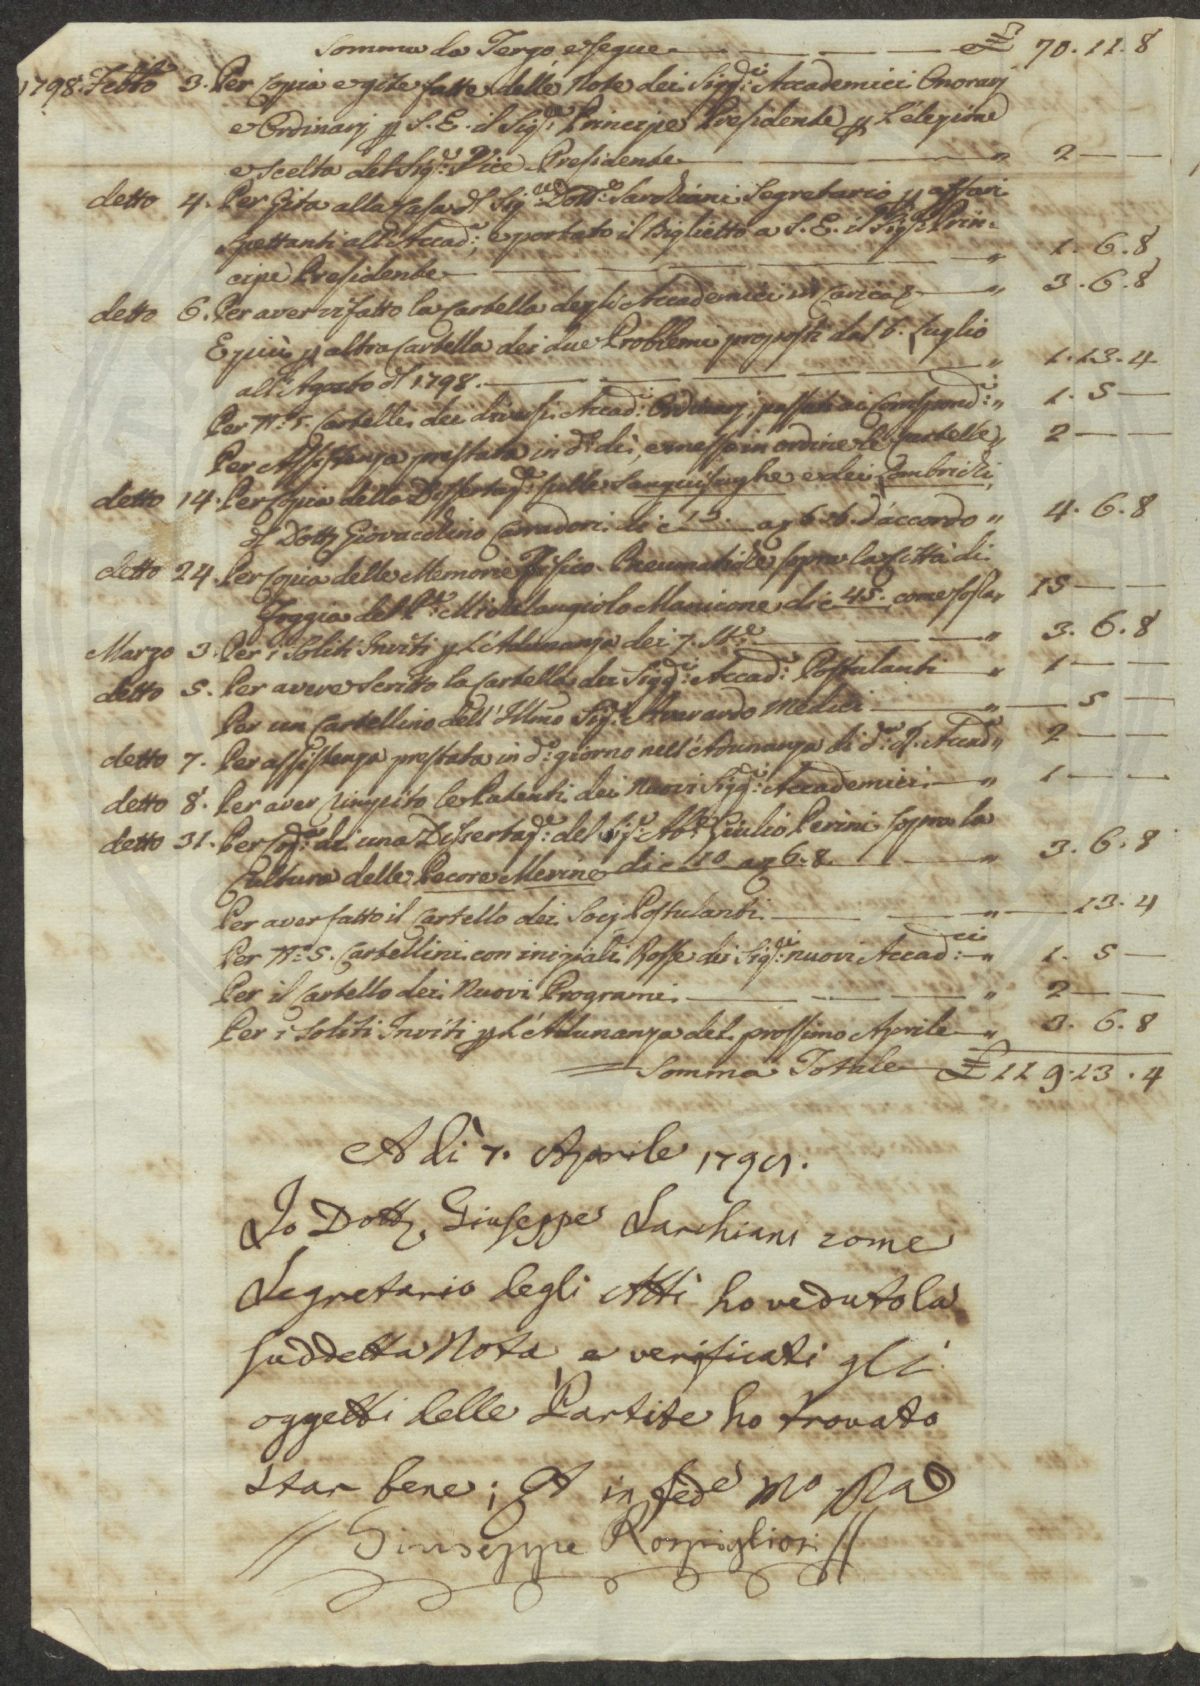 Somma da Tergo e segue £ 70.11.8
1798. Febb.o 3. Per Copia e gite fatte delle Note dei Sigg.ri Accademici Onorarj
e Ordinarj p S. E. il Sig.e Principe Presidente p l'elezione
e scelta del Sig.e Vice-Presidente " 2 — —
detto 4. Per Gita alla Casa d Sig.re Dott.e Sarchiani Segretario p affari
spettanti all'Accad.; e portato il Biglietto a S. E. il Sig.e Prin=
cipe Presidente " 1. 6. 8
detto 6. Per aver rifatto la Cartella degli Accademici in Carica " 3. 6. 8
E più p altra Cartella dei due Problemi proposti dal Luglio
all'Agosto d 1798. " 1. 13. 4
Per N.o 5. Cartelli dei diversi Accad.ci Ordinarj, passati ai Corrispond.ti " 1. 5 —
Per Assistenza prestata in d.o dì, e messo in ordine le Cartelle " 2 — —
detto 14. Per Copia della Dissertaz.e sulle Sanguisughe e dei Lombrichi,
d Dott. Giovacchino Carradori di c 13. a 6. 8. d'accordo " 4. 6. 8
detto 24. Per Copia delle Memorie Fisico-Pneumatiche sopra la Città di
Foggia del P.re Michelangiolo Manicone di c 45. come sopra " 15 — —
Marzo 3. Per i Soliti Inviti p L'Adunanza dei 7. St.e " 3. 6. 8
detto 5. Per avere scritto la Cartella dei Sigg.ri Accad.ci Postulanti " 1 — —
Per un Cartellino dell'Illmo Sig.e Averardo Medici " — 5 —
detto 7. Per assistenza prestata in d.o giorno nell'Adunanza di d.a R. Accad.a " 2 — —
detto 8. Per aver riempito le Patenti dei Nuovi Sigg.ri Accademici " 1 — —
detto 31. Per Cop.a di una Dissertaz.e del Sig.e Ab.e Giulio Perini sopra la
Cultura delle Pecore Merine di c 10 a 6. 8 " 3. 6. 8
Per aver fatto il Cartello dei Socj Postulanti " — 13. 4
Per N.o 5. Cartellini con iniziali Rosse dei Sig.ri nuovi Accad.ci " 1. 5 —
Per il Cartello dei Nuovi Programi " 2 — —
Per i Soliti Inviti p L'Adunanza del prossimo Aprile " 3. 6. 8
Somma Totale £ 119. 13. 4
A dì 7. Aprile 179
Io Dott. Giuseppe Sarchiani come
Segretario degli Atti ho veduto la
suddetta Nota, e verificati gli
oggetti delle Partite ho trovato
star bene; et in fede mo pa
// Giuseppe Rospigliosi //